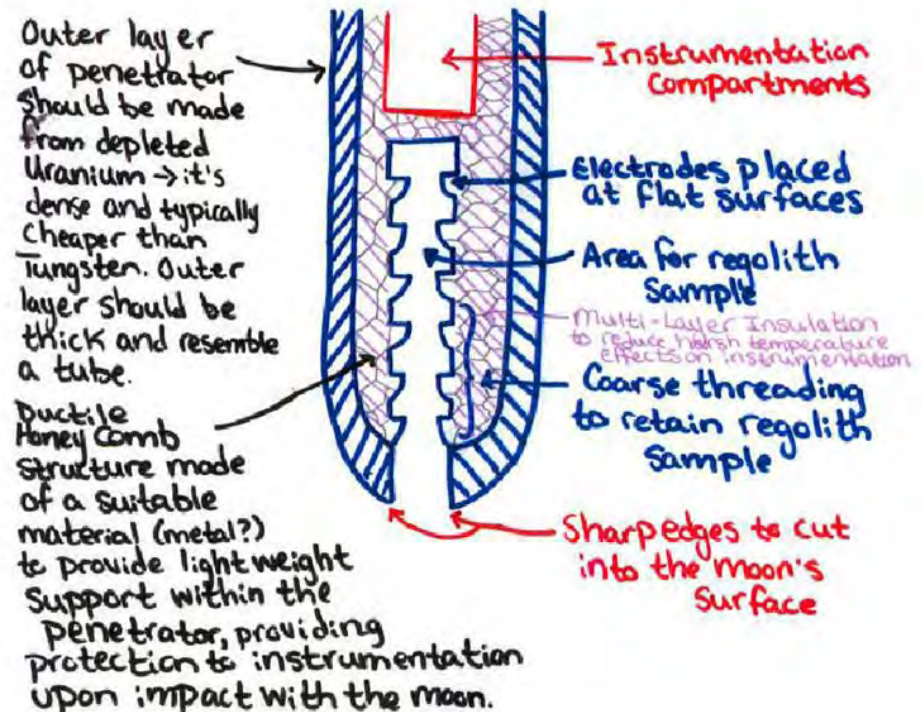 Outer layer
of penetrator
should be made
from depleted
Uranium → it's
dense and typically
cheaper than
Tungsten. Outer
layer should be
thick and resemble
a tube.
Ductile
Honey Comb
structure made
of a suitable
material (metal?)
to provide light weight
support within the
penetrator, providing
protection to instrumentation
upon impact with the moon.
Instrumentation
compartments
Electrodes placed
at flat surfaces
Area for regolith
sample
Multi-Layer Insulation
to reduce harsh temperature
effects on instrumentation
Coarse threading
to retain regolith
sample
Sharp edges to cut
into the moon's
surface